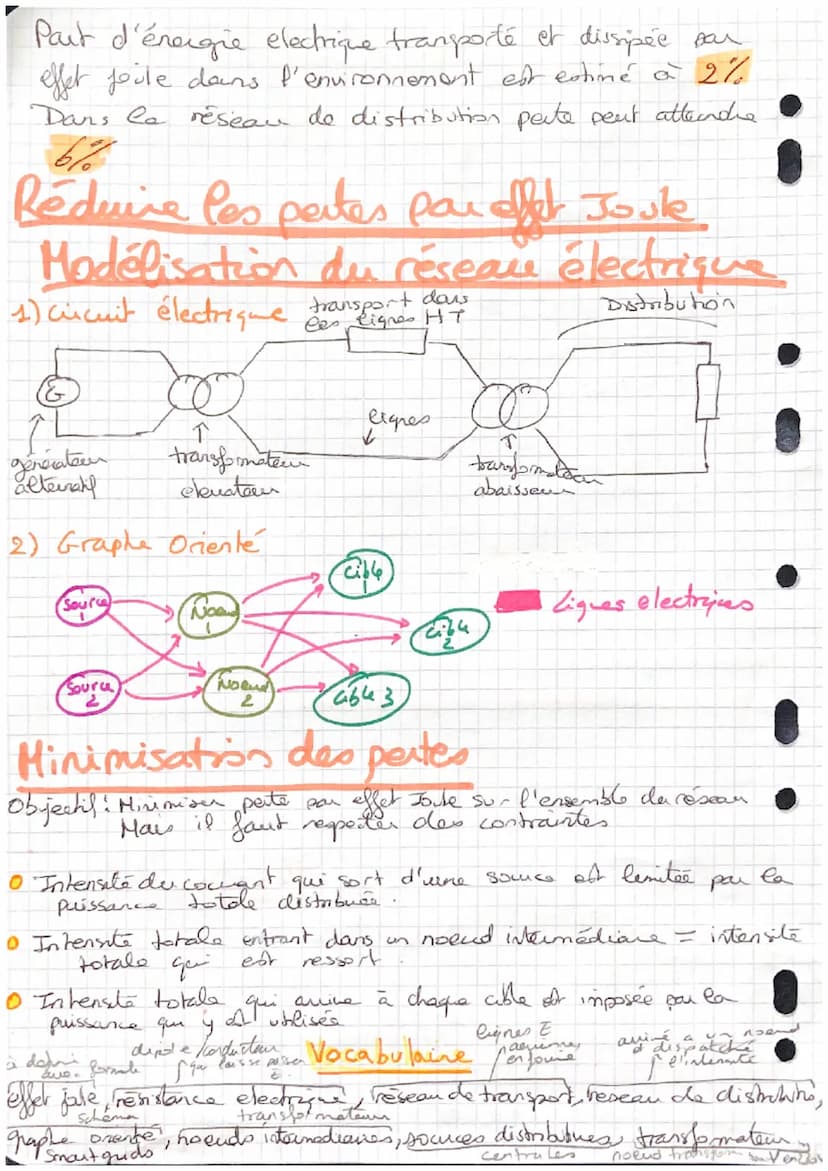 Part d'énergie electrique transporté et dissipée par
effet joile dans l'environnement est estimé à 2%
Dans le réseau de distribution perte peut atteindre
6%
Réduire les pertes par effet Joule
Modélisation du réseau électrique
1) Circuit électrique
transport dans
les lignes HT
Distribution
G
lignes
générateur
alternatif
transformateur
elevateur
transformateur
abaisseur
2) Graphe Orienté
Cible
1
Source
1
Noeud
1
Cible
2
lignes electriques
Source
2
Noeud
2
Cible 3
Minimisation des pertes
Objectif : Minimiser perte par effet Joule sur l'ensemble du réseau
Mais il faut respecter des contraintes
Intensité du courant qui sort d'une source est limitée par la
puissance totale distribuée.
Intensité totale entrant dans un noeud intermédiaire = intensité
totale qui est ressort.
Intensité totale qui arrive à chaque cible est imposée par la
puissance qui y est utilisée
à définir
avec formule
qui laisse passer
E.
Vocabulaire
lignes E
aeriennes
enfouie
arrivé a un noeud
dispatché
l'intensité
effet joule, résistance electrique, réseau de transport, reseau de distributio,
schéma
transformateur
graphe orienté, noeuds intermediaires, sources distributrices, transformateur
Smartgrids
centrales
noeud transform